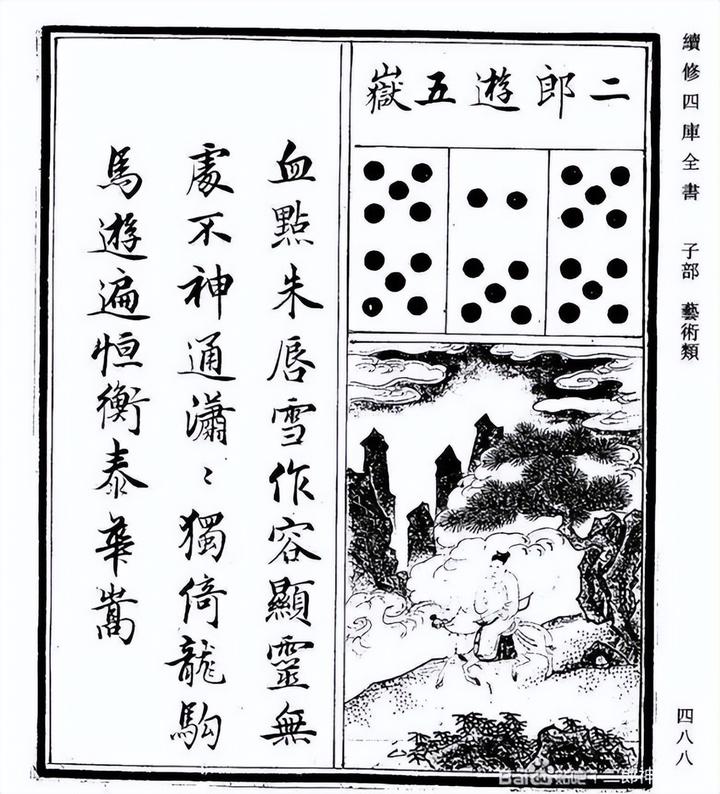 續修四庫全書 子部 藝術類
二郎遊五嶽
血點朱唇雪作容顯靈無
處不神通瀟〻獨倚龍駒
馬遊遍恒衡泰華嵩
四八八